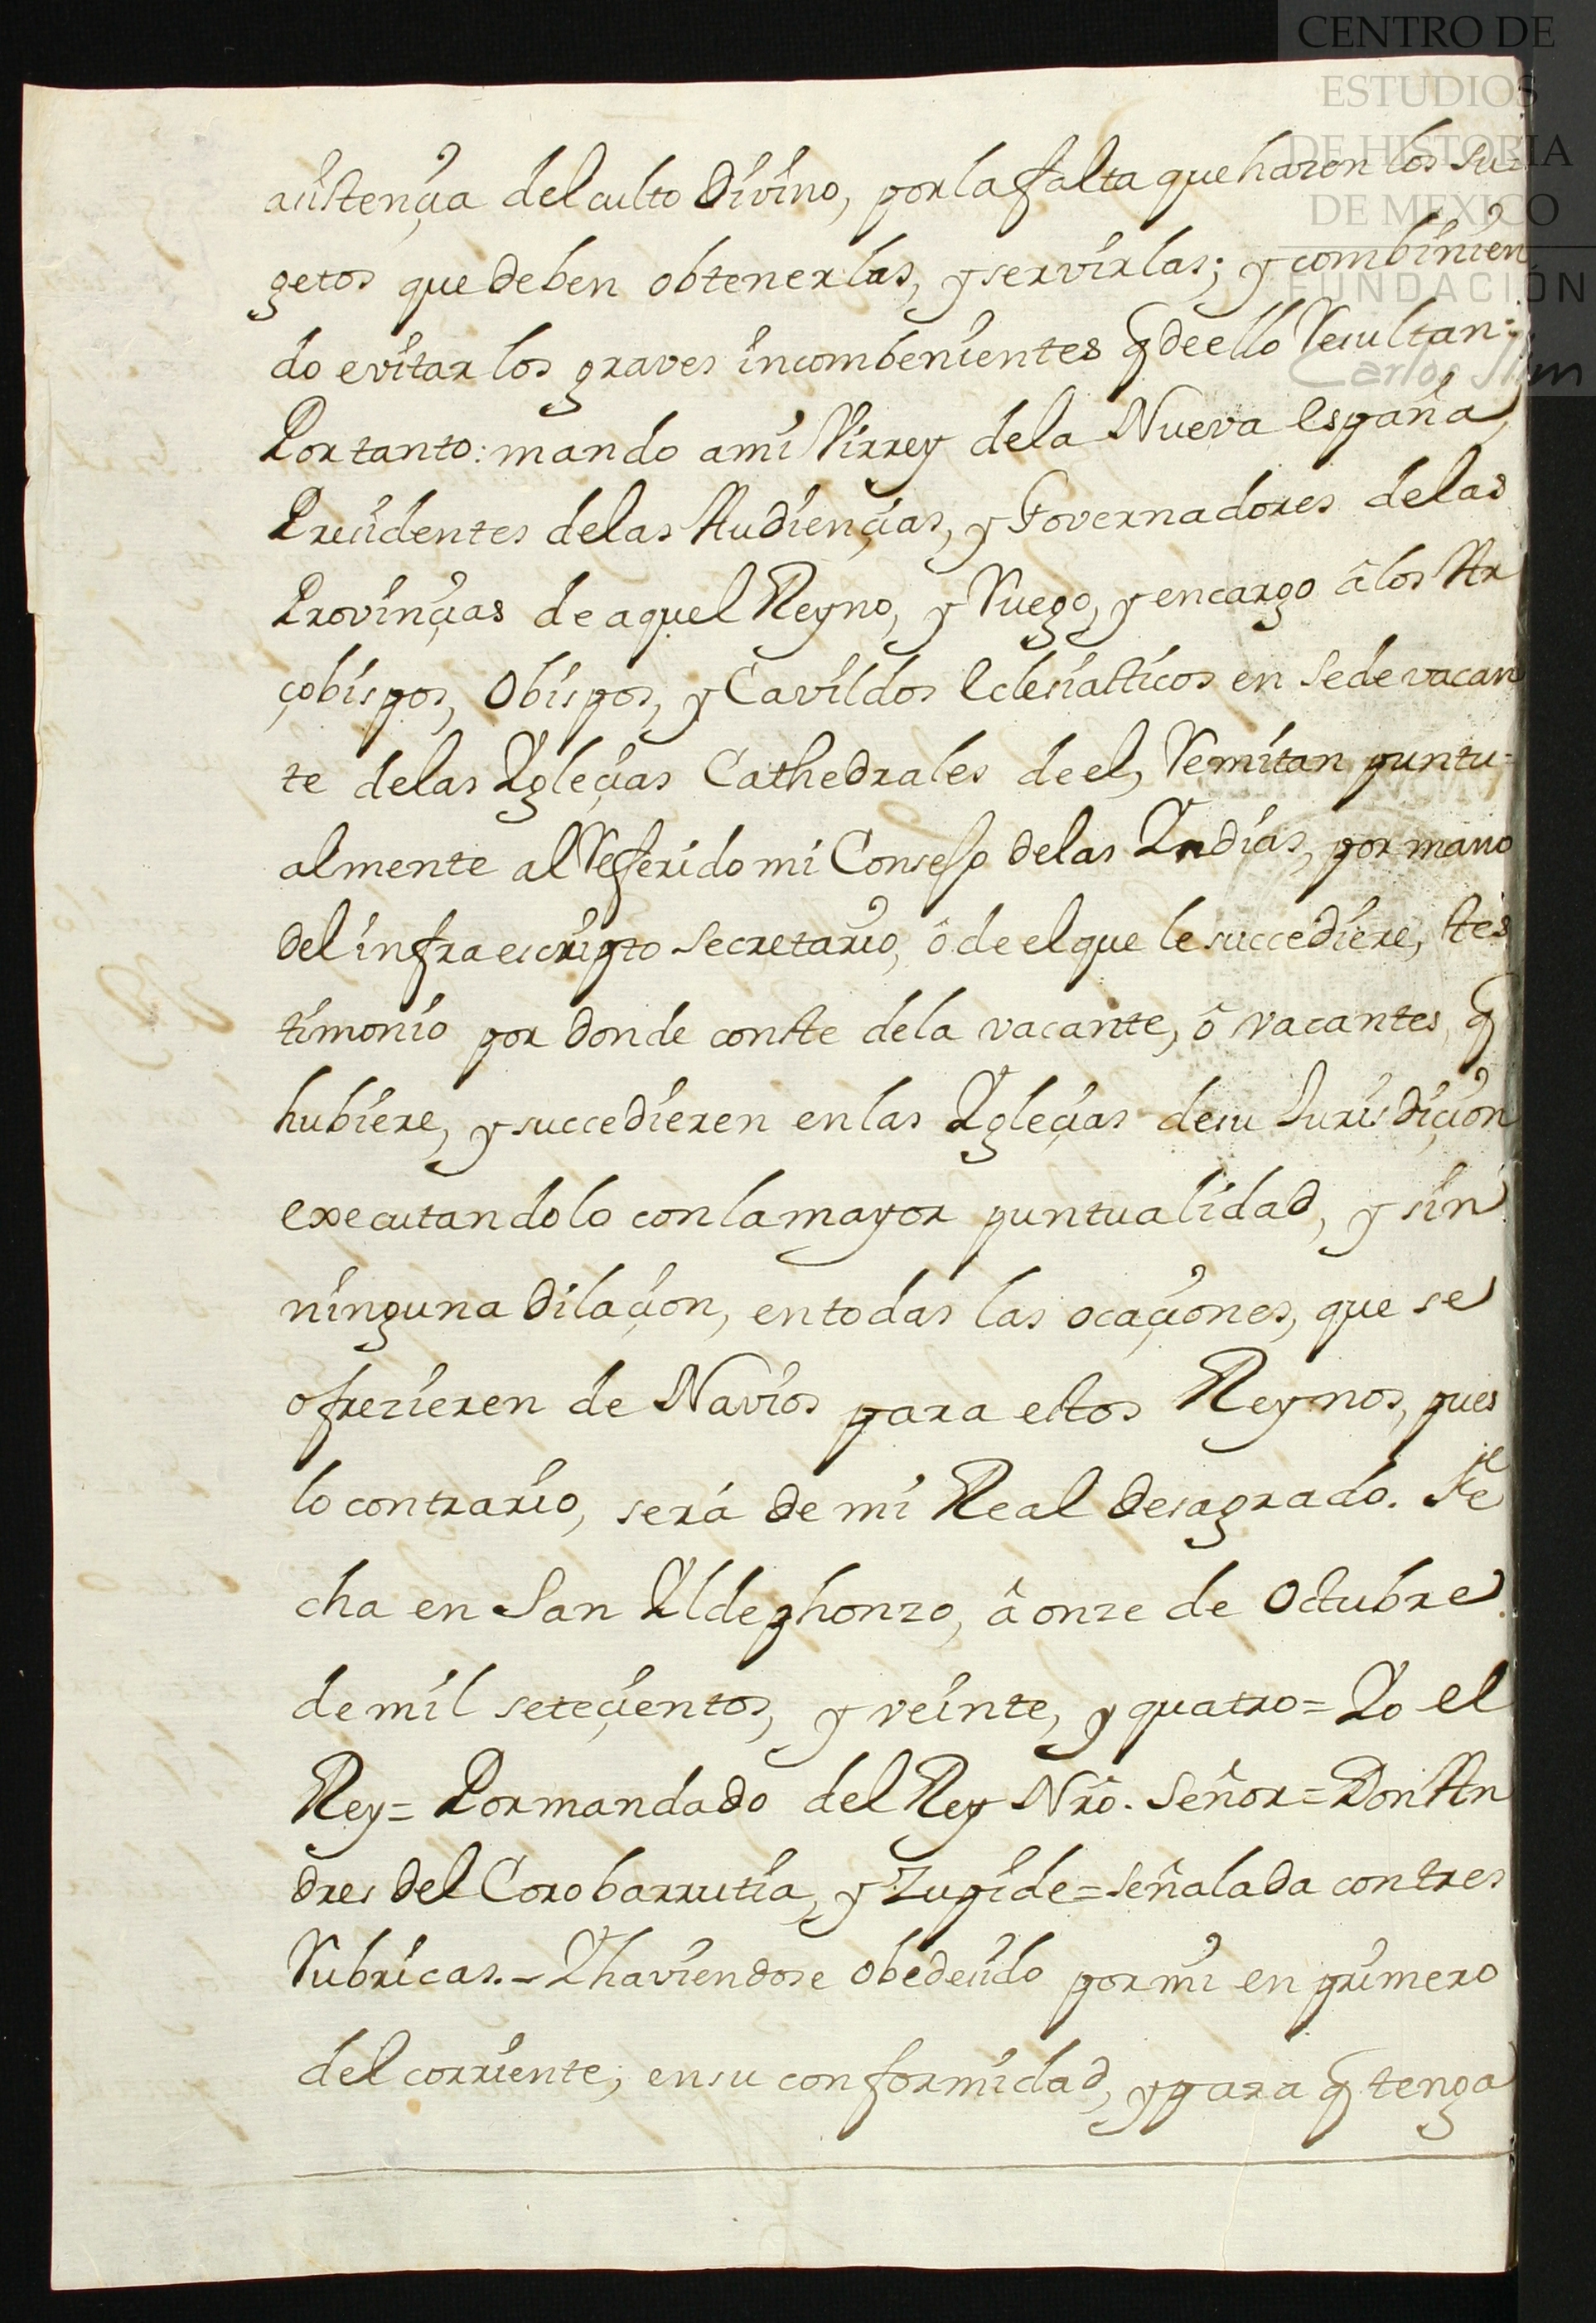 CENTRO DE
ESTUDIOS
DE HISTORIA
DE MEXICO
FUNDACIÓN
Carlos Slim
asistençia del culto Divino, por la falta que hazen los Su-
getos que deben obtenerlas, y servirlas; y combinien
do evitar los graves incombenientes q̃ de ello Resultan:
Por tanto: mando a mi Virrey de la Nueva España,
Presidentes de las Audiençias, y Governadores de las
Provinçias de aquel Reyno, y Ruego, y encargo â los Ar
çobispos, Obispos, y Cavildos Eclesiasticos en Sede vacan
te de las Ygleçias Cathedrales de el, Remitan puntu=
almente al Referido mi Consejo de las Yndias, por mano
del infraescripto Secretario, ô de el que le succediere, tes
timonio por donde conste de la vacante, ô vacantes, q̃
hubiere, y succedieren en las Ygleçias de su Jurisdiçion
executandolo con la mayor puntualidad, y sin
ninguna dilaçion, en todas las ocaçiones, que se
ofrezieren de Navios para estos Reynos, pues
lo contrario, será de mi Real desagrado. Fe
cha en San Yldephonzo, â onze de Octubre
de mil seteçientos, y veinte, y quatro = Yo el
Rey = Por mandado del Rey Nrô. Señor = Don An
dres del Corobarrutia, y Zupide = Señalada con tres
Rubricas. - Y haviendose obedecido por mi en primero
del corriente; en su conformidad, y para q̃ tenga